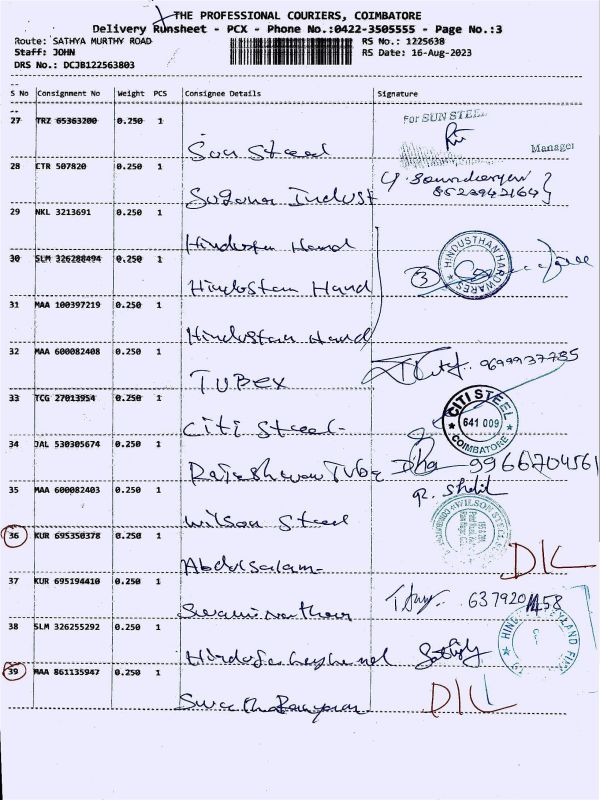 THE PROFESSIONAL COURIERS, COIMBATORE
Delivery Runsheet - PCX - Phone No.:0422-3505555 - Page No.:3
Route: SATHYA MURTHY ROAD RS No.: 1225638
Staff: JOHN RS Date: 16-Aug-2023
DRS No.: DCJB122563803
S No Consignment No Weight PCS Consignee Details Signature
27 TRZ 65363200 0.250 1 For SUN STEEL
Sun Steel Manager
28 CTR 507820 0.250 1
Suguna Indust
29 NKL 3213691 0.250 1
Hindustan Hand
30 SLM 326288494 0.250 1 HINDUSTHAN HARDWARES
Hindustan Hand 3
31 MAA 100397219 0.250 1
Hindustan Hand
32 MAA 600082408 0.250 1 9699937785
TUBEX
33 TCG 27013954 0.250 1 CITI STEEL 641 009 COIMBATORE
Citi Steel
34 JAL 530305674 0.250 1
Rajeshwari Tube 9966704561
35 MAA 600082403 0.250 1
Wilson Steel WILSON STEEL
36 KUR 695350378 0.250 1
Abdulsalam DIL
37 KUR 695194410 0.250 1
Swaminathan
38 SLM 326255292 0.250 1
39 MAA 861135947 0.250 1
DIL